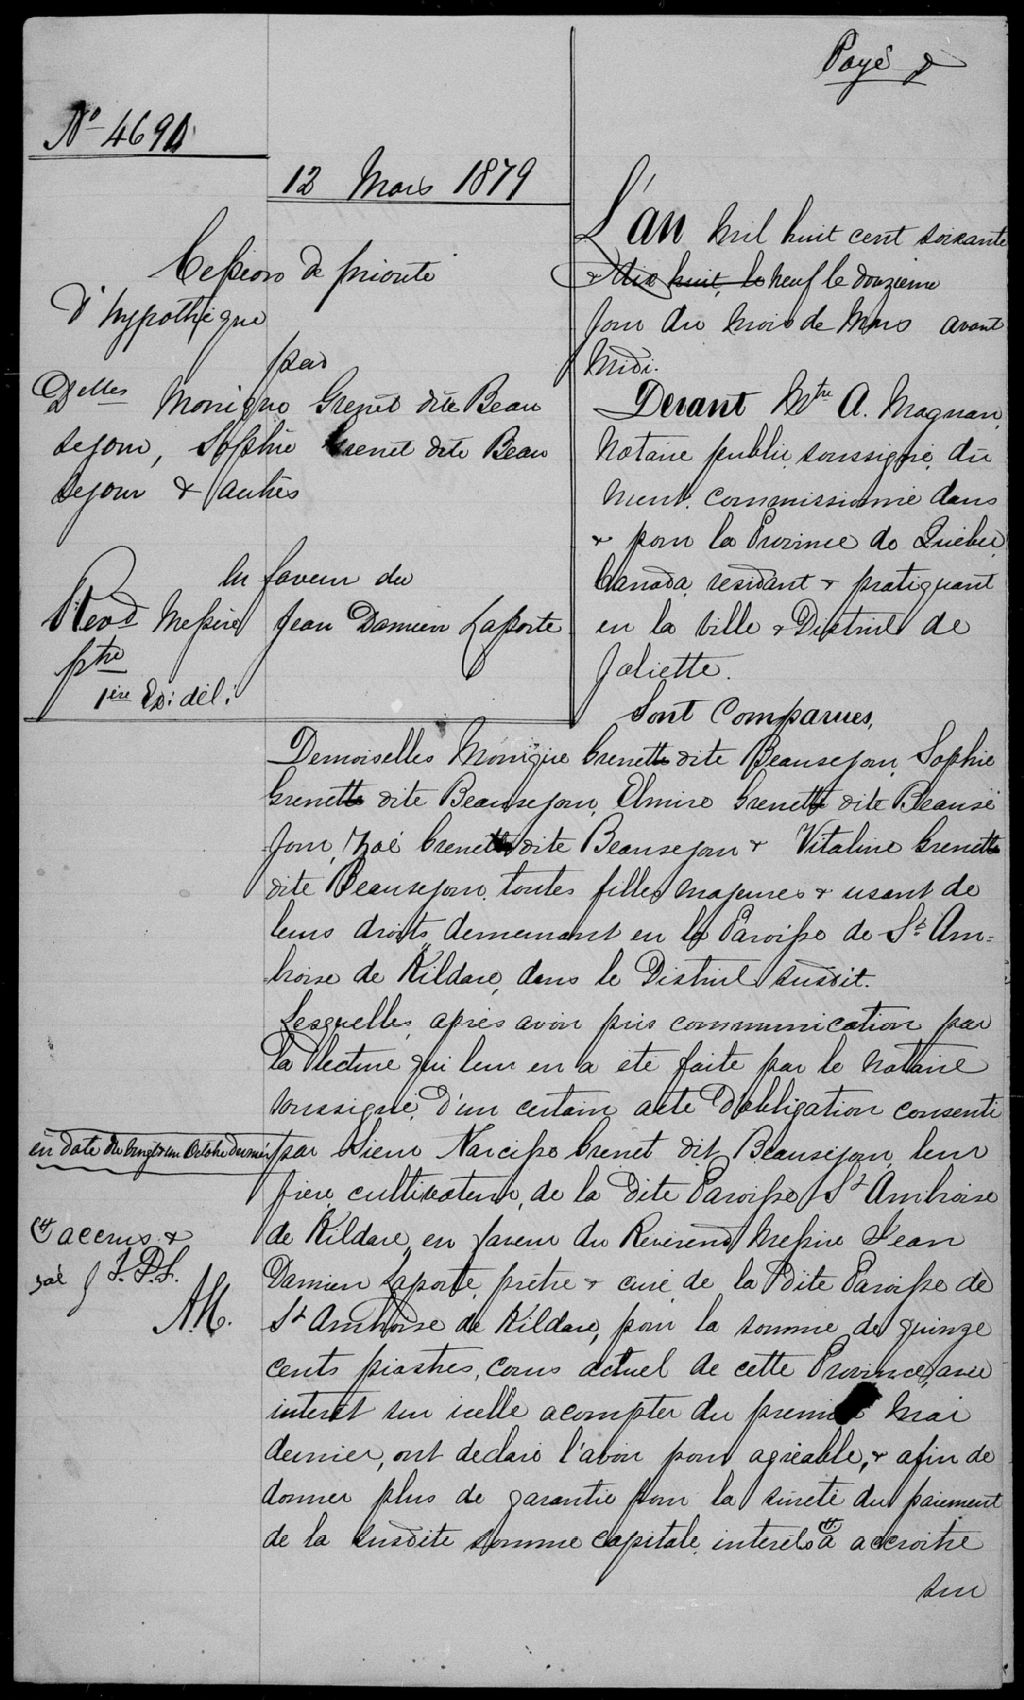 Payé
No 4690
12 Mars 1879
Cession de priorité
d'hypothèque
par
Delles Monique Grenet dite Beau
sejour, Sophie Grenet dite Beau
sejour & autres
en faveur du
Revd Messire Jean Damien Laporte
ptre
1ère Ex: dél:
L'an mil huit cent soixante
& dix huit, le neuf le douzième
jour du mois de Mars avant
midi.
Devant Mtre A. Magnan,
Notaire public, soussigné, du
ment commissionné dans
& pour la Province de Québec,
Canada, résidant & pratiquant
en la ville & District de
Joliette.
Sont Comparues,
Demoiselles Monique Grenette dite Beausejour, Sophie
Grenette dite Beausejour, Elmire Grenette dite Beause
jour, Zoé Grenette dite Beausejour & Vitaline Grenette
dite Beausejour, toutes filles majeures & usant de
leurs droits demeurant en la Paroisse de St. Am=
broise de Kildare, dans le District susdit.
Lesquelles, après avoir pris communication par
la lecture qui leur en a été faite par le Notaire
soussigné, d'un certain acte d'obligation consenti
en date du vingt un Octobre dernier
par Sieur Narcisse Grenet dit Beausejour, leur
frère cultivateur, de la dite Paroisse St Ambroise
de Kildare, en faveur du Révérend Messire Jean
Damien Laporte, prêtre & curé de la dite Paroisse de
St Ambroise de Kildare, pour la somme de quinze
cents piastres, cours actuel de cette Province, avec
intérêt sur icelle à compter du premier Mai
dernier, ont déclaré l'avoir pour agréable, & afin de
donner plus de garantie pour la sureté du paiement
de la susdite somme capitale, intérêts à accroitre
accrus &
J. D. L.
A.M.
sur